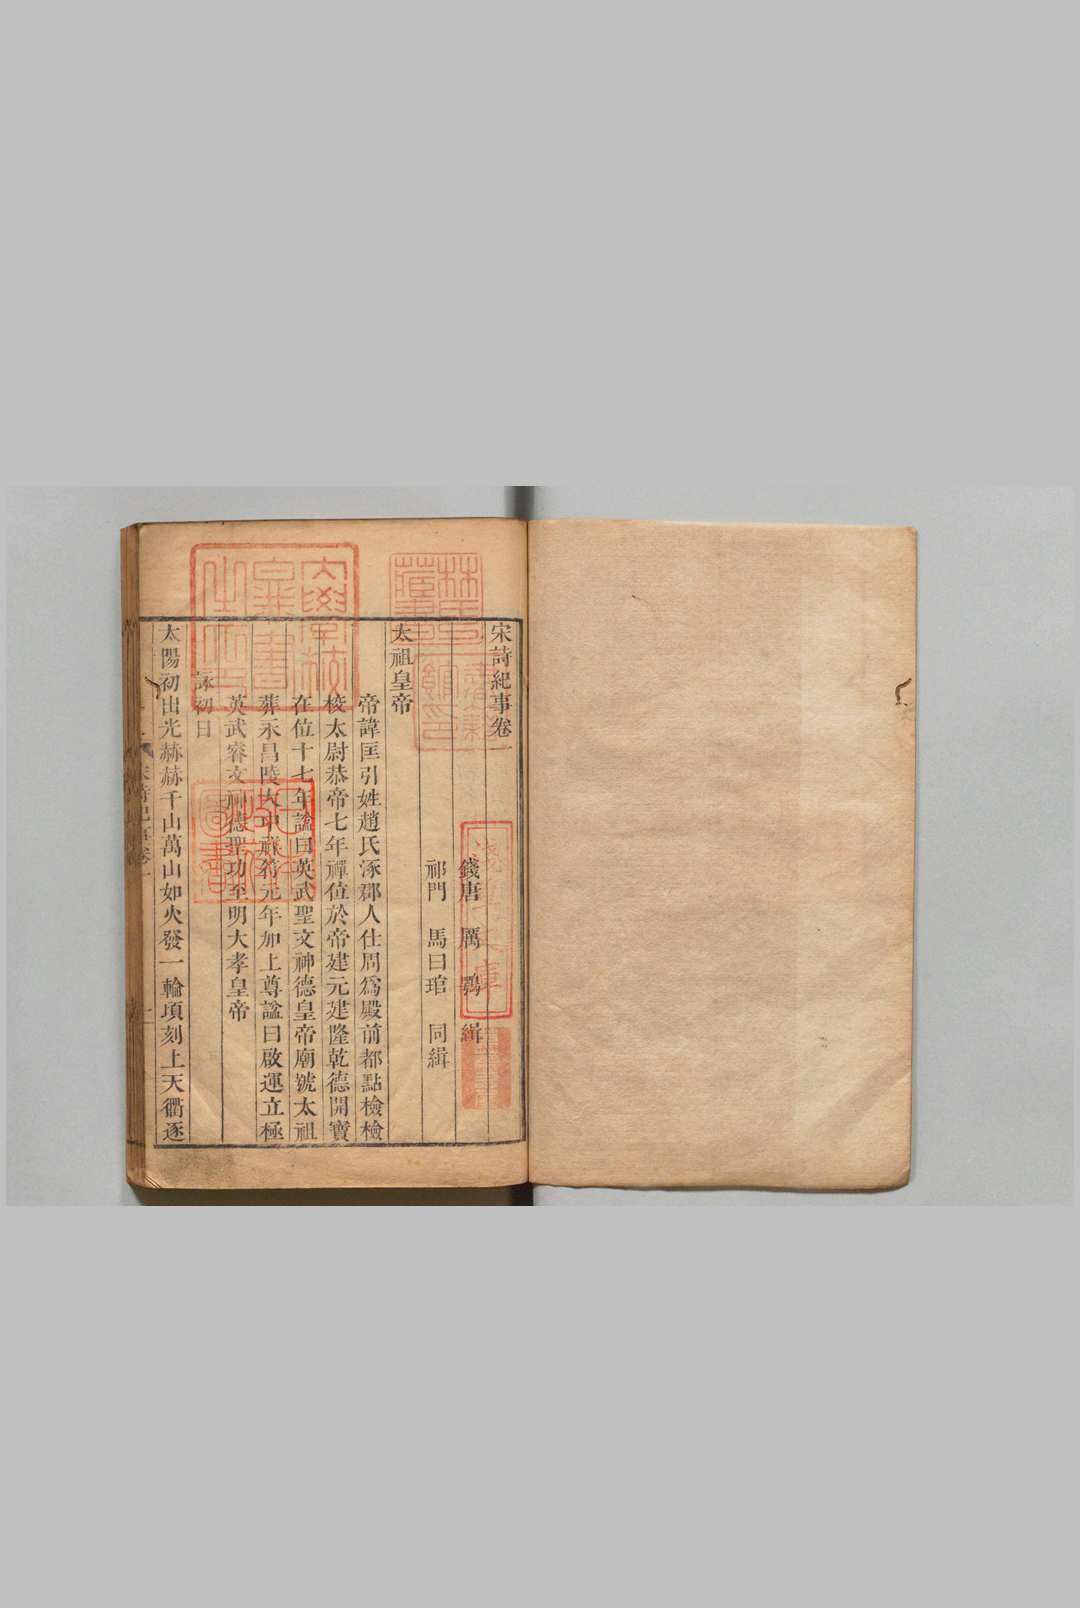 宋詩紀事卷一
錢唐 厲 鶚 緝
祁門 馬曰琯 同緝
太祖皇帝
帝諱匡引姓趙氏涿郡人仕周為殿前都點檢檢
校太尉恭帝七年禪位於帝建元建隆乾德開寶
在位十七年諡曰英武聖文神德皇帝廟號太祖
葬永昌陵大中祥符元年加上尊諡曰啟運立極
英武睿文神德聖功至明大孝皇帝
詠初日
太陽初出光赫赫千山萬山如火發一輪頃刻上天衢逐
宋詩紀事卷一
大學校
彙書
之印
林氏
藏書
淺草文庫
日本
政府
圖書